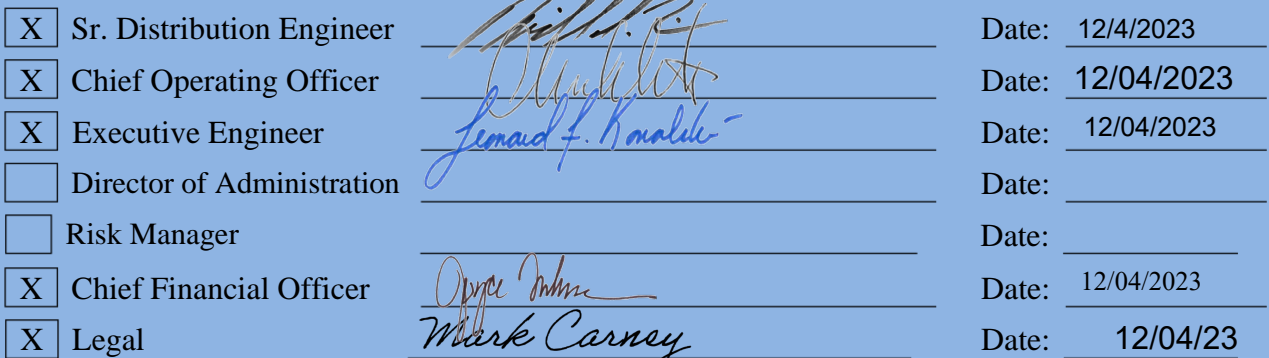 X Sr. Distribution Engineer Date: 12/4/2023
X Chief Operating Officer Date: 12/04/2023
X Executive Engineer Leonard F. Date: 12/04/2023
Director of Administration Date:
Risk Manager Date:
X Chief Financial Officer Joyce Date: 12/04/2023
X Legal Mark Carney Date: 12/04/23